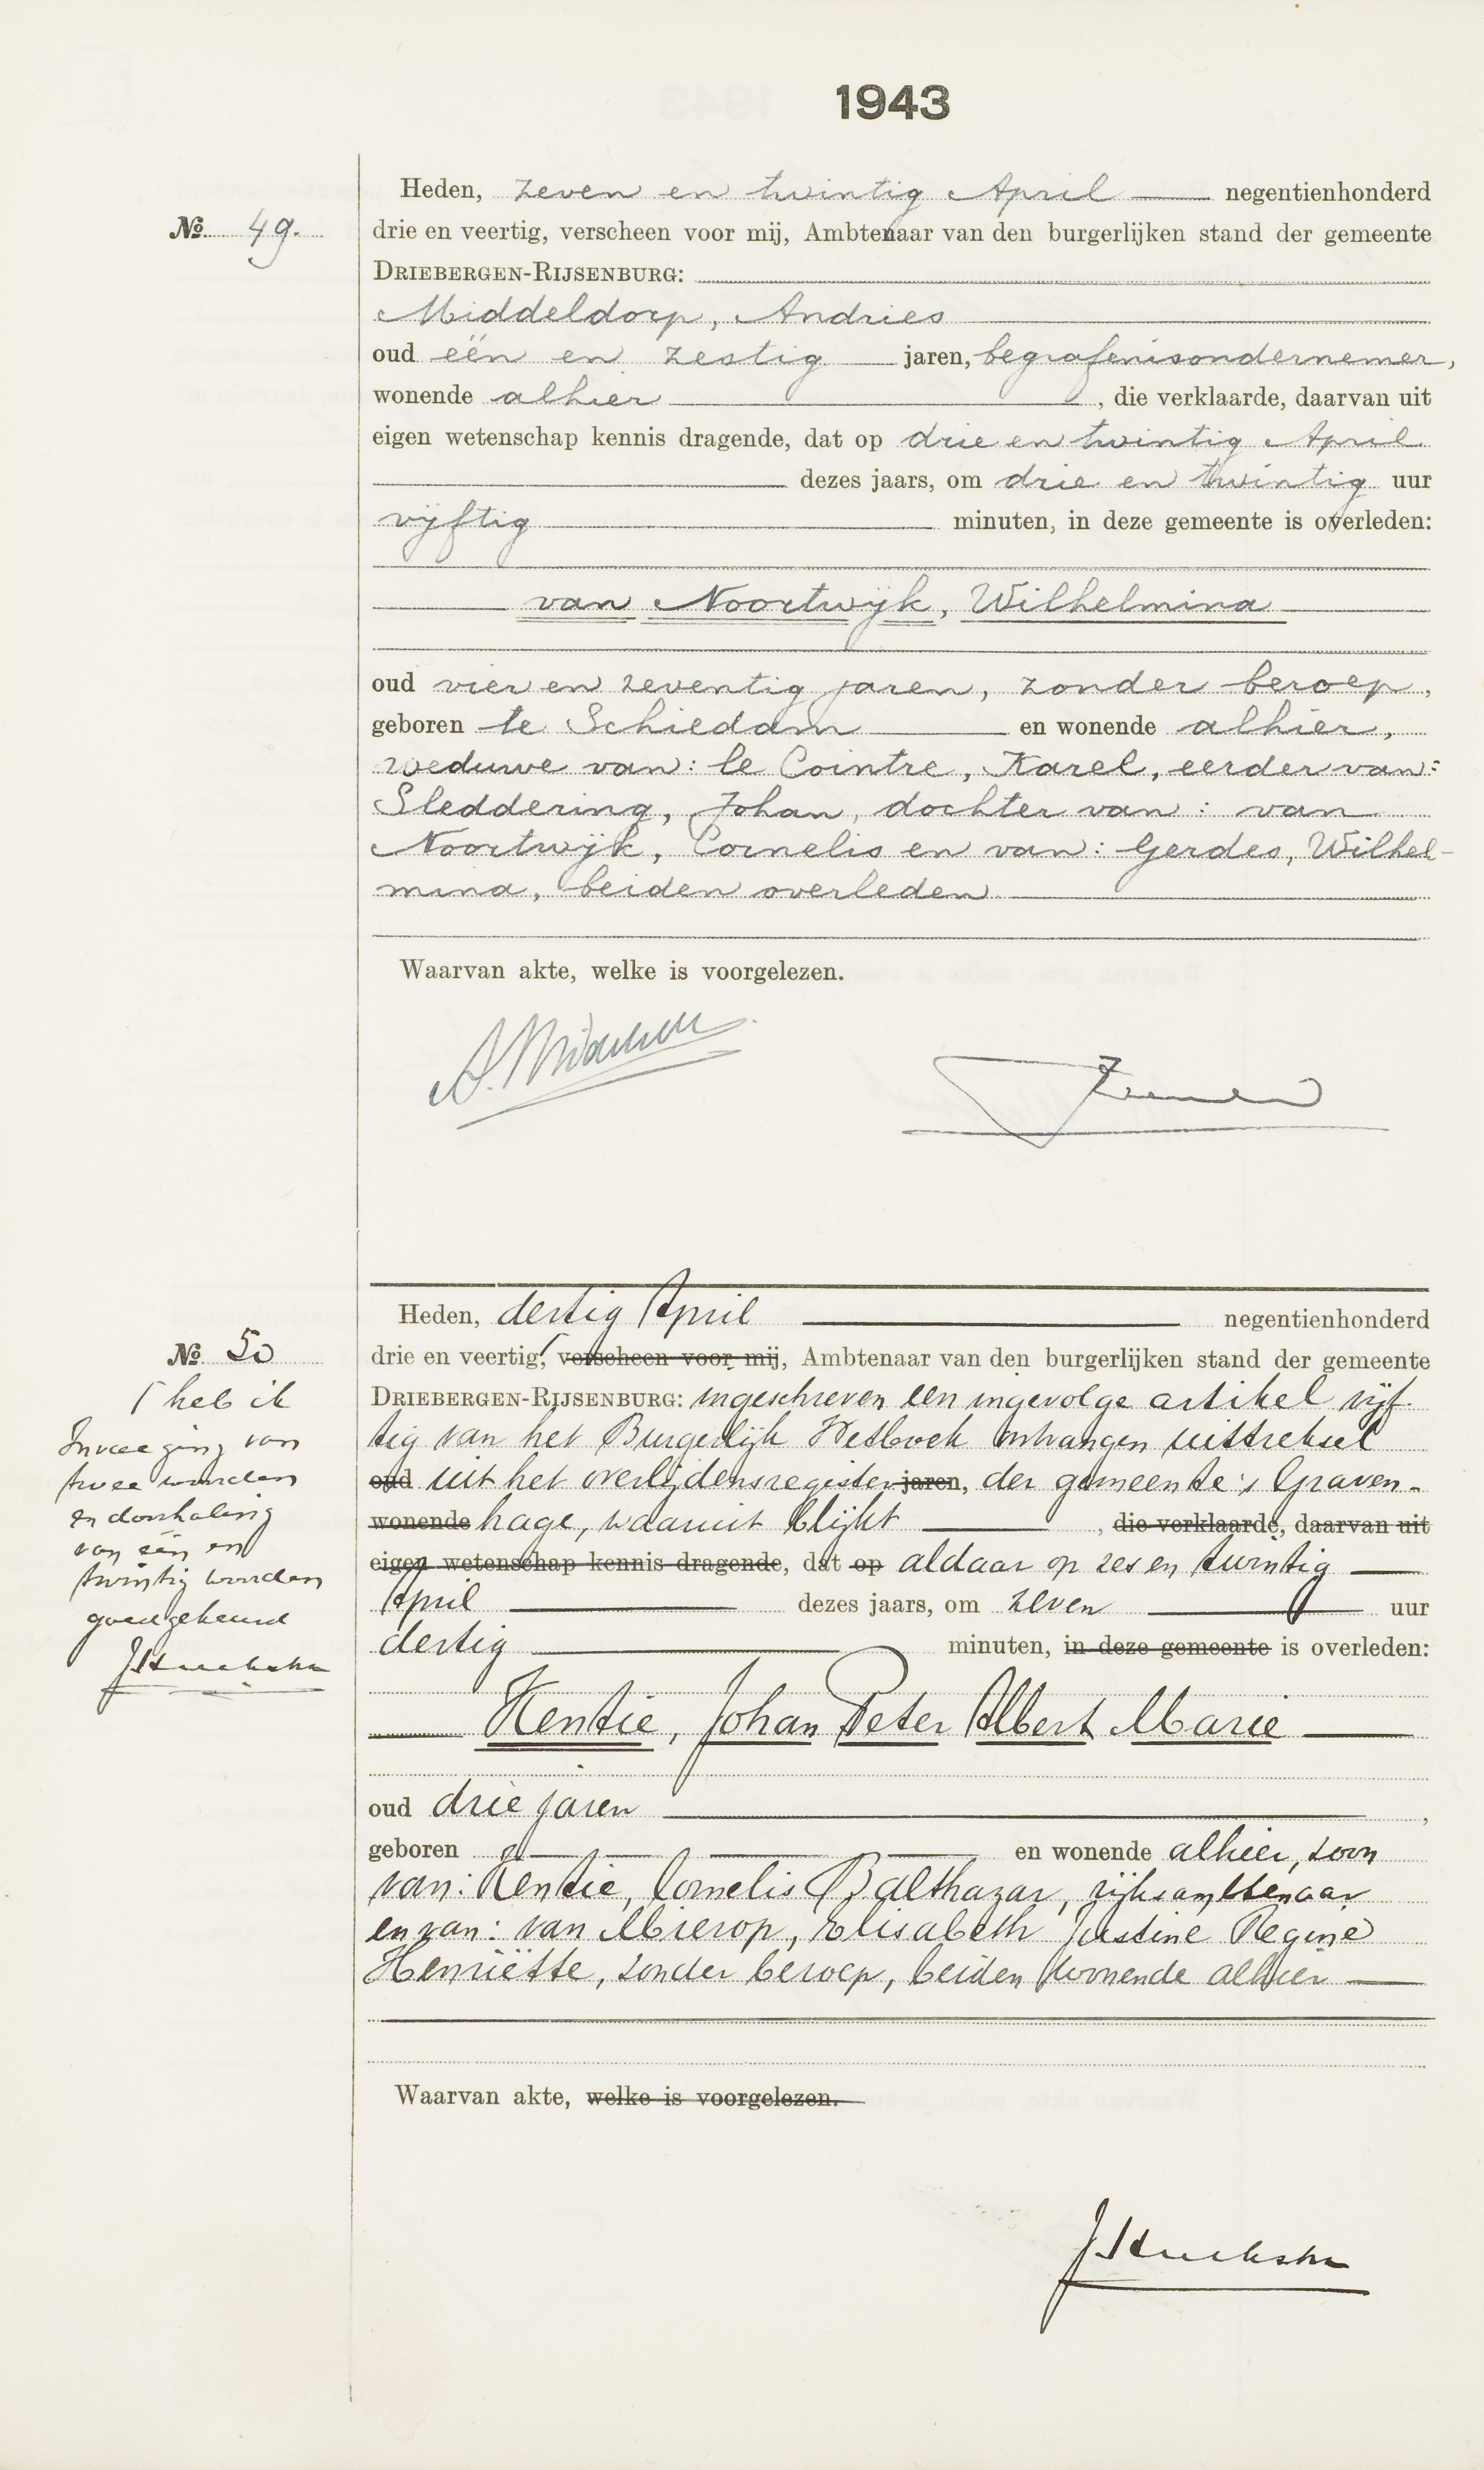 1943
Heden, zeven en twintig April negentienhonderd
№ 49. drie en veertig, verscheen voor mij, Ambtenaar van den burgerlijken stand der gemeente
DRIEBERGEN-RIJSENBURG:
Middeldorp, Andries
oud eën en zestig jaren, begrafenisondernemer,
wonende alhier, die verklaarde, daarvan uit
eigen wetenschap kennis dragende, dat op drie en twintig April
dezes jaars, om drie en twintig uur
vijftig minuten, in deze gemeente is overleden:
van Noortwijk, Wilhelmina
oud vier en zeventig jaren, zonder beroep,
geboren te Schiedam en wonende alhier,
weduwe van: le Cointre, Karel, eerder van:
Sleddering, Johan, dochter van: van
Noortwijk, Cornelis en van: Gerdes, Wilhel-
mina, beiden overleden
Waarvan akte, welke is voorgelezen.
Heden, dertig April negentienhonderd
№ 50 drie en veertig, verscheen voor mij, Ambtenaar van den burgerlijken stand der gemeente
heb ik
DRIEBERGEN-RIJSENBURG: ingeschreven een ingevolge artikel vijf-
Invoeging van
tig van het Burgerlijk Wetboek ontvangen uittreksel
twee woorden
oud uit het overlijdensregister jaren, der gemeente 's Graven-
en doorhaling
wonende hage, waaruit blijkt, die verklaarde, daarvan uit
van één en
eigen wetenschap kennis dragende, dat op aldaar op zes en twintig
twintig woorden
April dezes jaars, om zeven uur
goedgekeurd
dertig minuten, in deze gemeente is overleden:
Kentie, Johan Peter Albert Marie
oud drie jaren,
geboren en wonende alhier, zoon
van: Kentie, Cornelis Balthazar, rijksambtenaar
en van: van Mierop, Elisabeth Justine Regine
Henriëtte, zonder beroep, beiden wonende alhier
Waarvan akte, welke is voorgelezen.